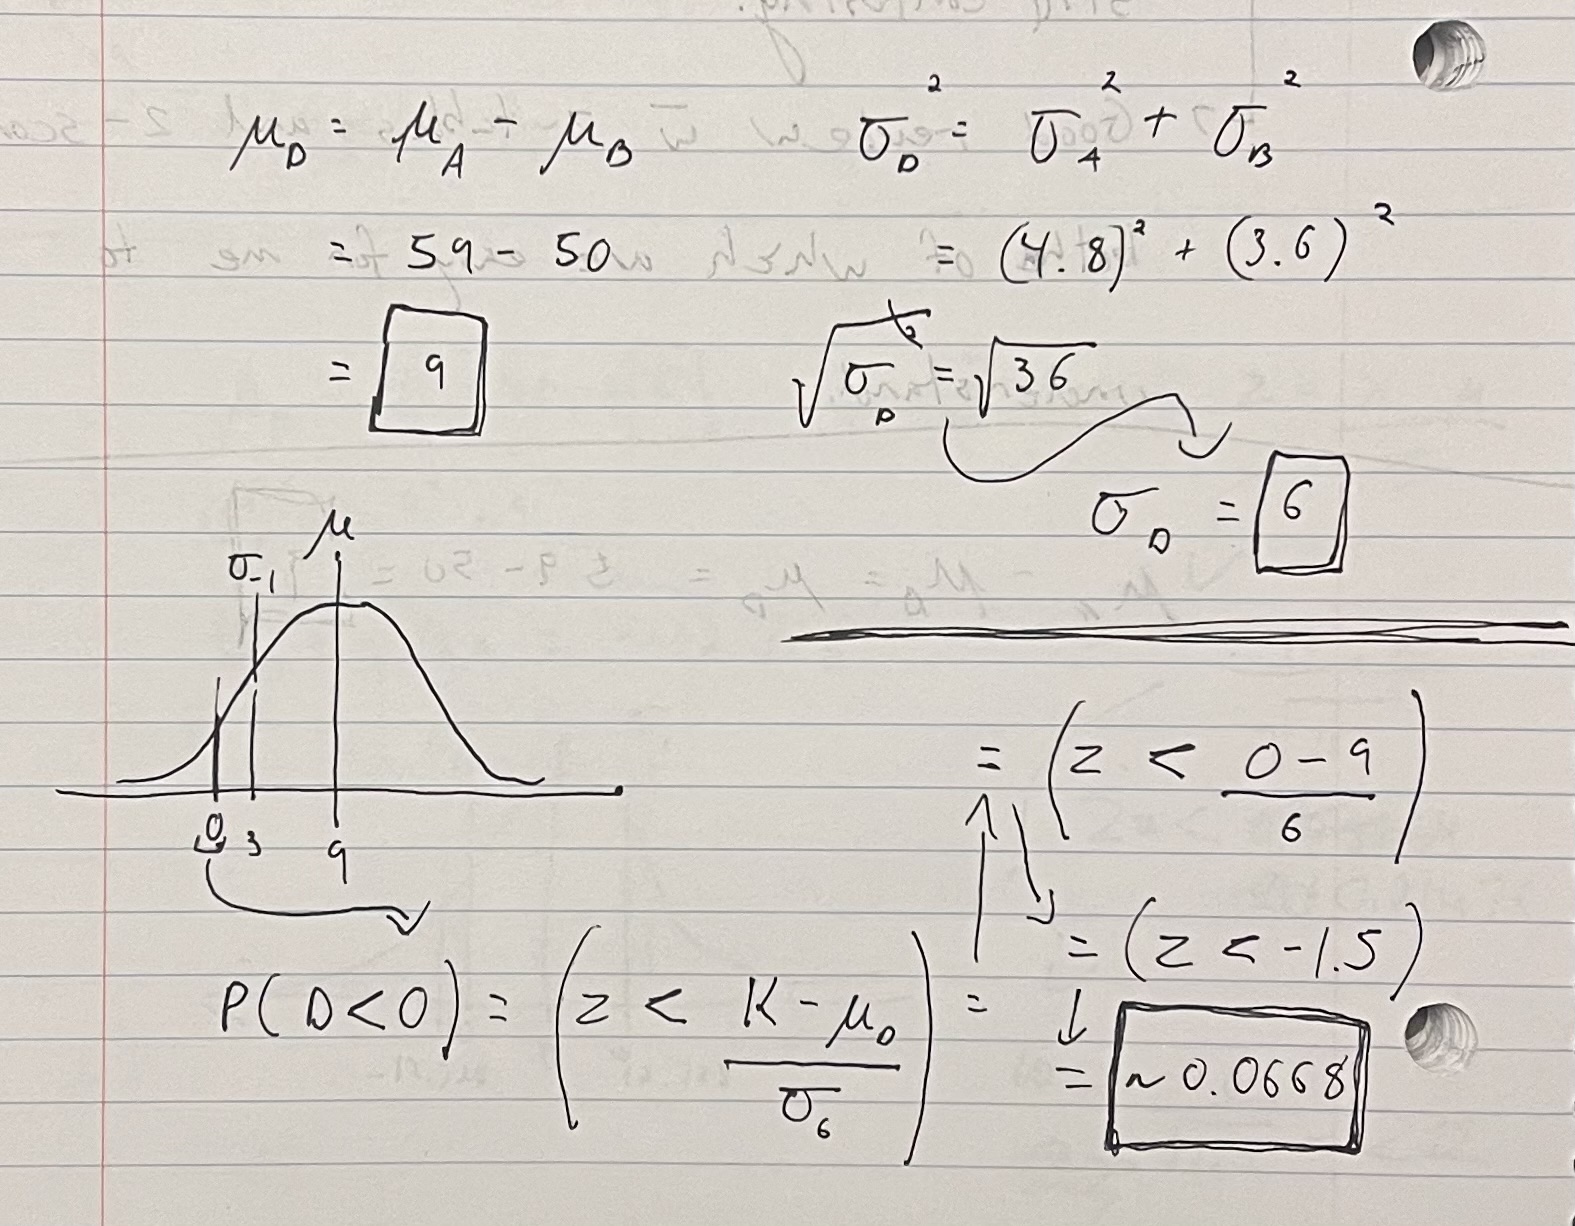 μ_D = μ_A - μ_B
= 59 - 50
= 9
σ_D² = σ_A² + σ_B²
= (4.8)² + (3.6)²
√σ_D² = √36
σ_D = 6
σ-1 μ
0 3 9
P(D<0) = (z < K - μ_D / σ_6) =
= (z < 0 - 9 / 6)
= (z < -1.5)
= ~0.0668